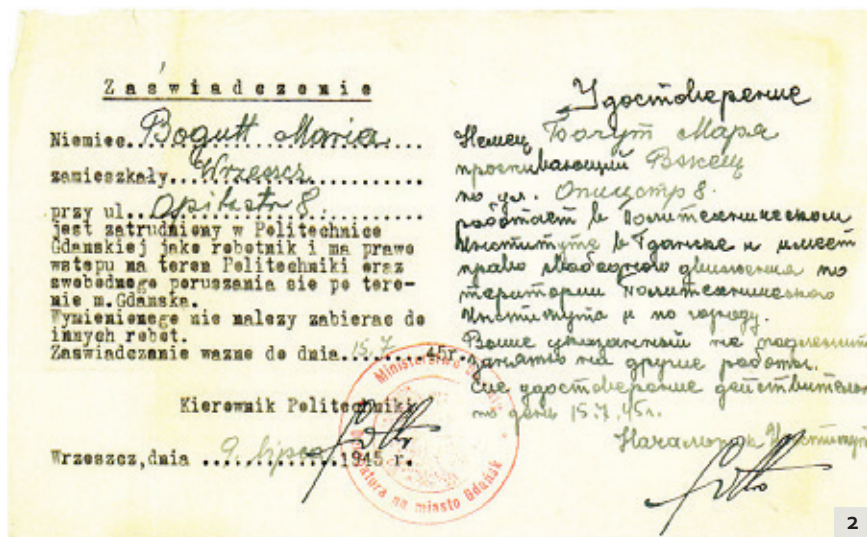 Zaświadczenie
Niemiec..Bogutt Maria
zamieszkały..Wrzeszcz
przy ul...Opitzstr 8
jest zatrudniony w Politechnice
Gdanskiej jako robotnik i ma prawo
wstepu na teren Politechniki oraz
swobodnego poruszania sie po tere-
nie m.Gdańska.
Wymienionego nie nalezy zabierac do
innych robot.
Zaswiadczenie wazne do dnia.15.7....45r.
Kierownik Politechniki
Wrzeszcz,dnia ...9. lipca...1945 r.
Ministerstwo
na miasto Gdańsk
Удостоверение
Немец Богут Маря
проживающий Вжещ
по ул. Опицстр 8.
работает в Политехническом
Институте в Гданске и имеет
право свободного движения по
територии Политехнического
Института и по городу.
Выше указанный не подлежит
занятью на другие работы.
Сие удостоверение действительно
по день 15.7.45г.
Начальник Института
2